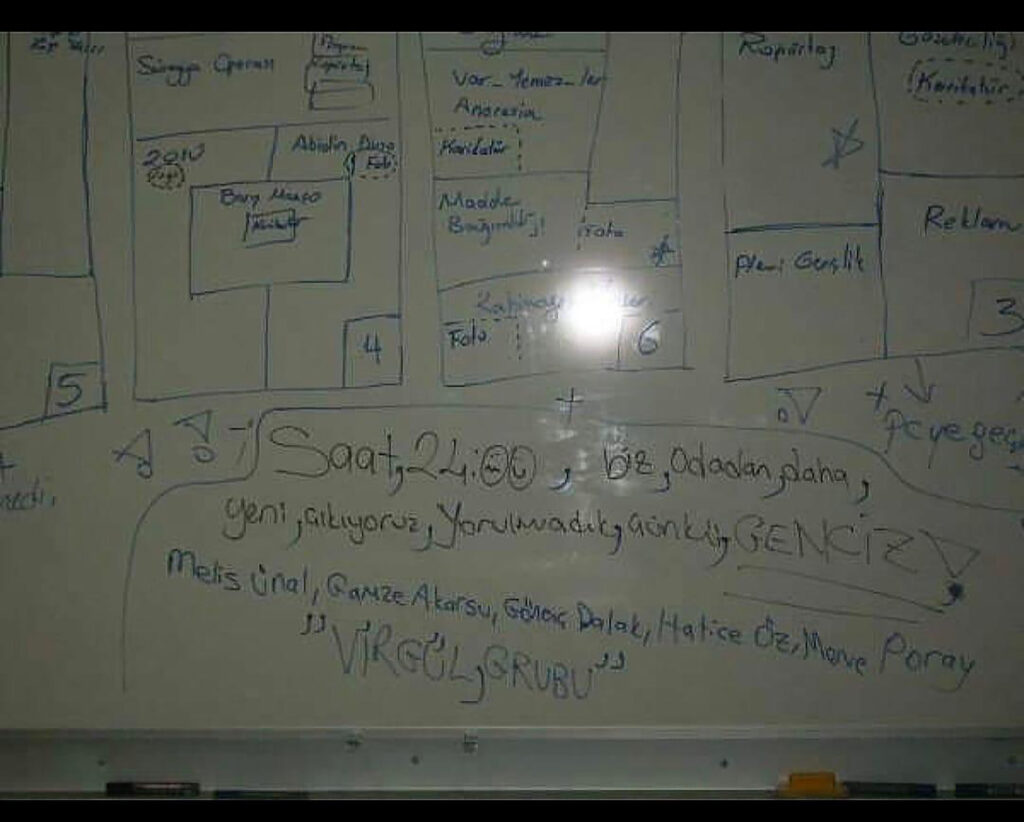 Sünger Operası
Röportaj
2010
Abidin
Foto
Barış Manço
Karikatür
4
5
Var-Yemez-ler
Anoreksia
Karikatür
Madde
Bağımlılığı
Foto
Foto
6
Röportaj
Karikatür
Reklam
Gençlik
3
Pc ye geç
Saat,24:00, biz,odadan,daha,
yeni,çıkıyoruz,Yorulmadık,çünkü,GENCİZ
Melis Ünal, Gamze Akarsu, Dalak, Hatice Öz, Merve Poray
"VİRGÜL,GRUBU"